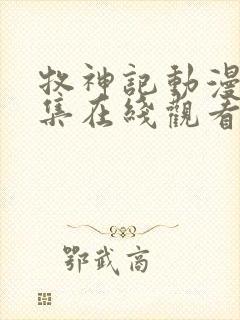 牧神記動漫
集在綫觀看
鄂武商